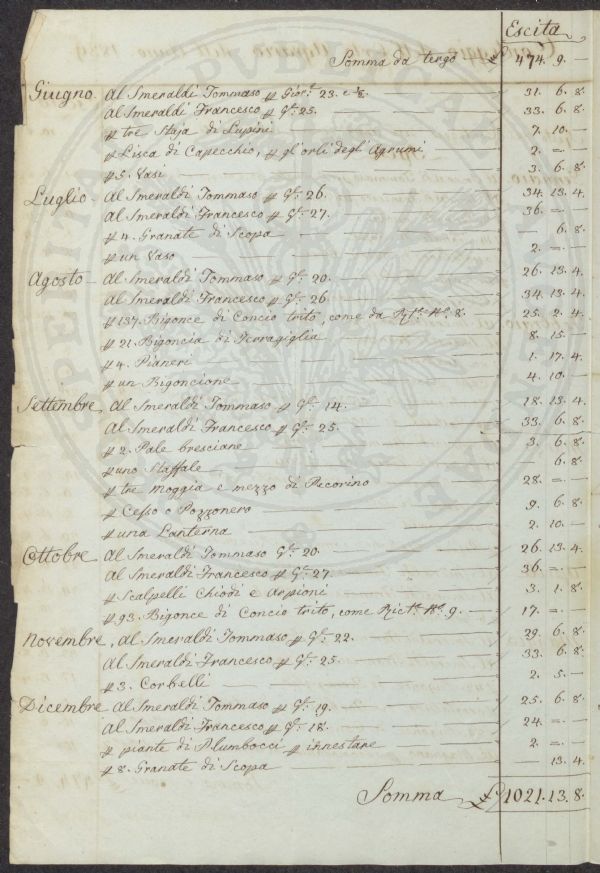 Escita
Somma da tergo 474. 9. —
Giugno. Al Smeraldi Tommaso p Gior.t 23. e ½. 31. 6. 8.
Al Smeraldi Francesco p G.t 25. 33. 6. 8.
p tre Staja di Lupini 7. 10. —
p Lisca di Capecchio, p gl'orli degl'Agrumi 2. =. —
p 5. Vasi 3. 6. 8.
Luglio Al Smeraldi Tommaso p G.t 26. 34. 13. 4.
Al Smeraldi Francesco p G.t 27. 36. =. —
p 4. Granate di Scopa — 6. 8.
p un Vaso 2. =. —
Agosto Al Smeraldi Tommaso p G.t 20. 26. 13. 4.
Al Smeraldi Francesco p G.t 26 34. 13. 4
p 137. Bigonce di Concio trito, come da N.o 8. 25. 2. 4.
p 21. Bigoncia di 8. 15. —
p 4. Pianeri 1. 17. 4.
p un Bigoncione 4. 10. —
Settembre Al Smeraldi Tommaso p G.t 14. 18. 13. 4
Al Smeraldi Francesco p G.t 25. 33. 6. 8.
p 2. Pale bresciane 3. 6. 8.
p uno Staffale — 6. 8.
p tre moggia e mezzo di Pecorino 28. =. —
p Cesso o Pozzonero 9. 6. 8.
p una Lanterna 2. 10. —
Ottobre Al Smeraldi Tommaso G.t 20. 26. 13. 4
Al Smeraldi Francesco p G.t 27. 36. =. —
p Scalpelli Chiodi e Arpioni 3. 1. 8.
p 93. Bigonce di Concio trito, come Rict.a N.o 9. 17. =. —
Novembre, Al Smeraldi Tommaso p G.t 22. 29. 6. 8.
Al Smeraldi Francesco p G.t 25. 33. 6. 8.
p 3. Corbelli 2. 5. —
Dicembre Al Smeraldi Tommaso p G.t 19. 25. 6. 8.
Al Smeraldi Francesco p G.t 18. 24. =. —
p piante di p innestare 2. =. —
p 8. Granate di Scopa — 13. 4.
Somma 1021. 13. 8.